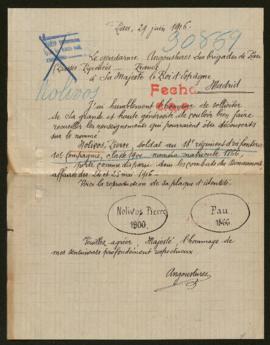 Pau, 29 juin 1916.
30869
Le gendarme Angoustures des brigades de Pau
(Basses Pyrénées France)
à Sa Majesté le Roi d'Espagne
Madrid
Fecha
Nolivos
J'ai humblement l'honneur de solliciter
de Sa grande et haute générosité de vouloir bien faire
recueillir les renseignements qui pourraient être découverts
sur le nommé
Nolivos, Pierre, soldat au 18e régiment d'infanterie
10e compagnie, classe 1900 numéro matricule
porté comme disparu dans les combats de
affaires des 24 et 25 mai 1916 -
Voici la reproduction de sa plaque d'identité.
Nolivos Pierre
1900
Pau
1866
Veuillez agréer Majesté l'hommage de
mes sentiments profondément respectueux
Angoustures